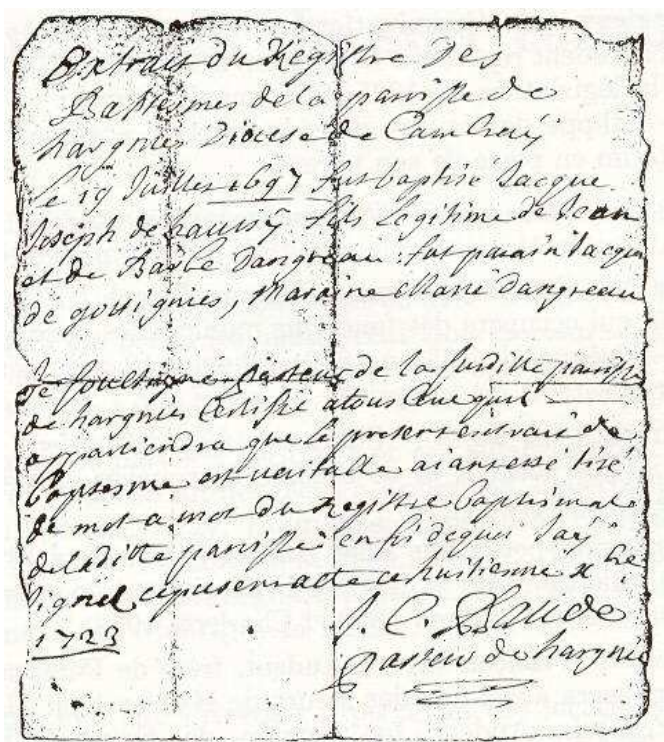 Extrait du Registre Des
Battesmes de la paroisse de
hargnies Diocese de Cambraÿ
le 19 Juillet 1697 fut baptisé Jacque
Joseph de haussÿ fils legitime de Jean
et de Barbe Dangreau : fut parain Jacque
de gottignies, Maraine Marie dangreau
Je soubsigné Pasteur de la susditte paroisse
de hargnies Certifie a tous ceux qu'il
appartiendra que le present extrait de
baptesme est veritable aiant esté tiré
de mot a mot du Registre baptismal
de laditte paroisse en foi de quoi J'aÿ
signé ce huitiesme xbre
1723
J. C. Baude
Pasteur de hargnies